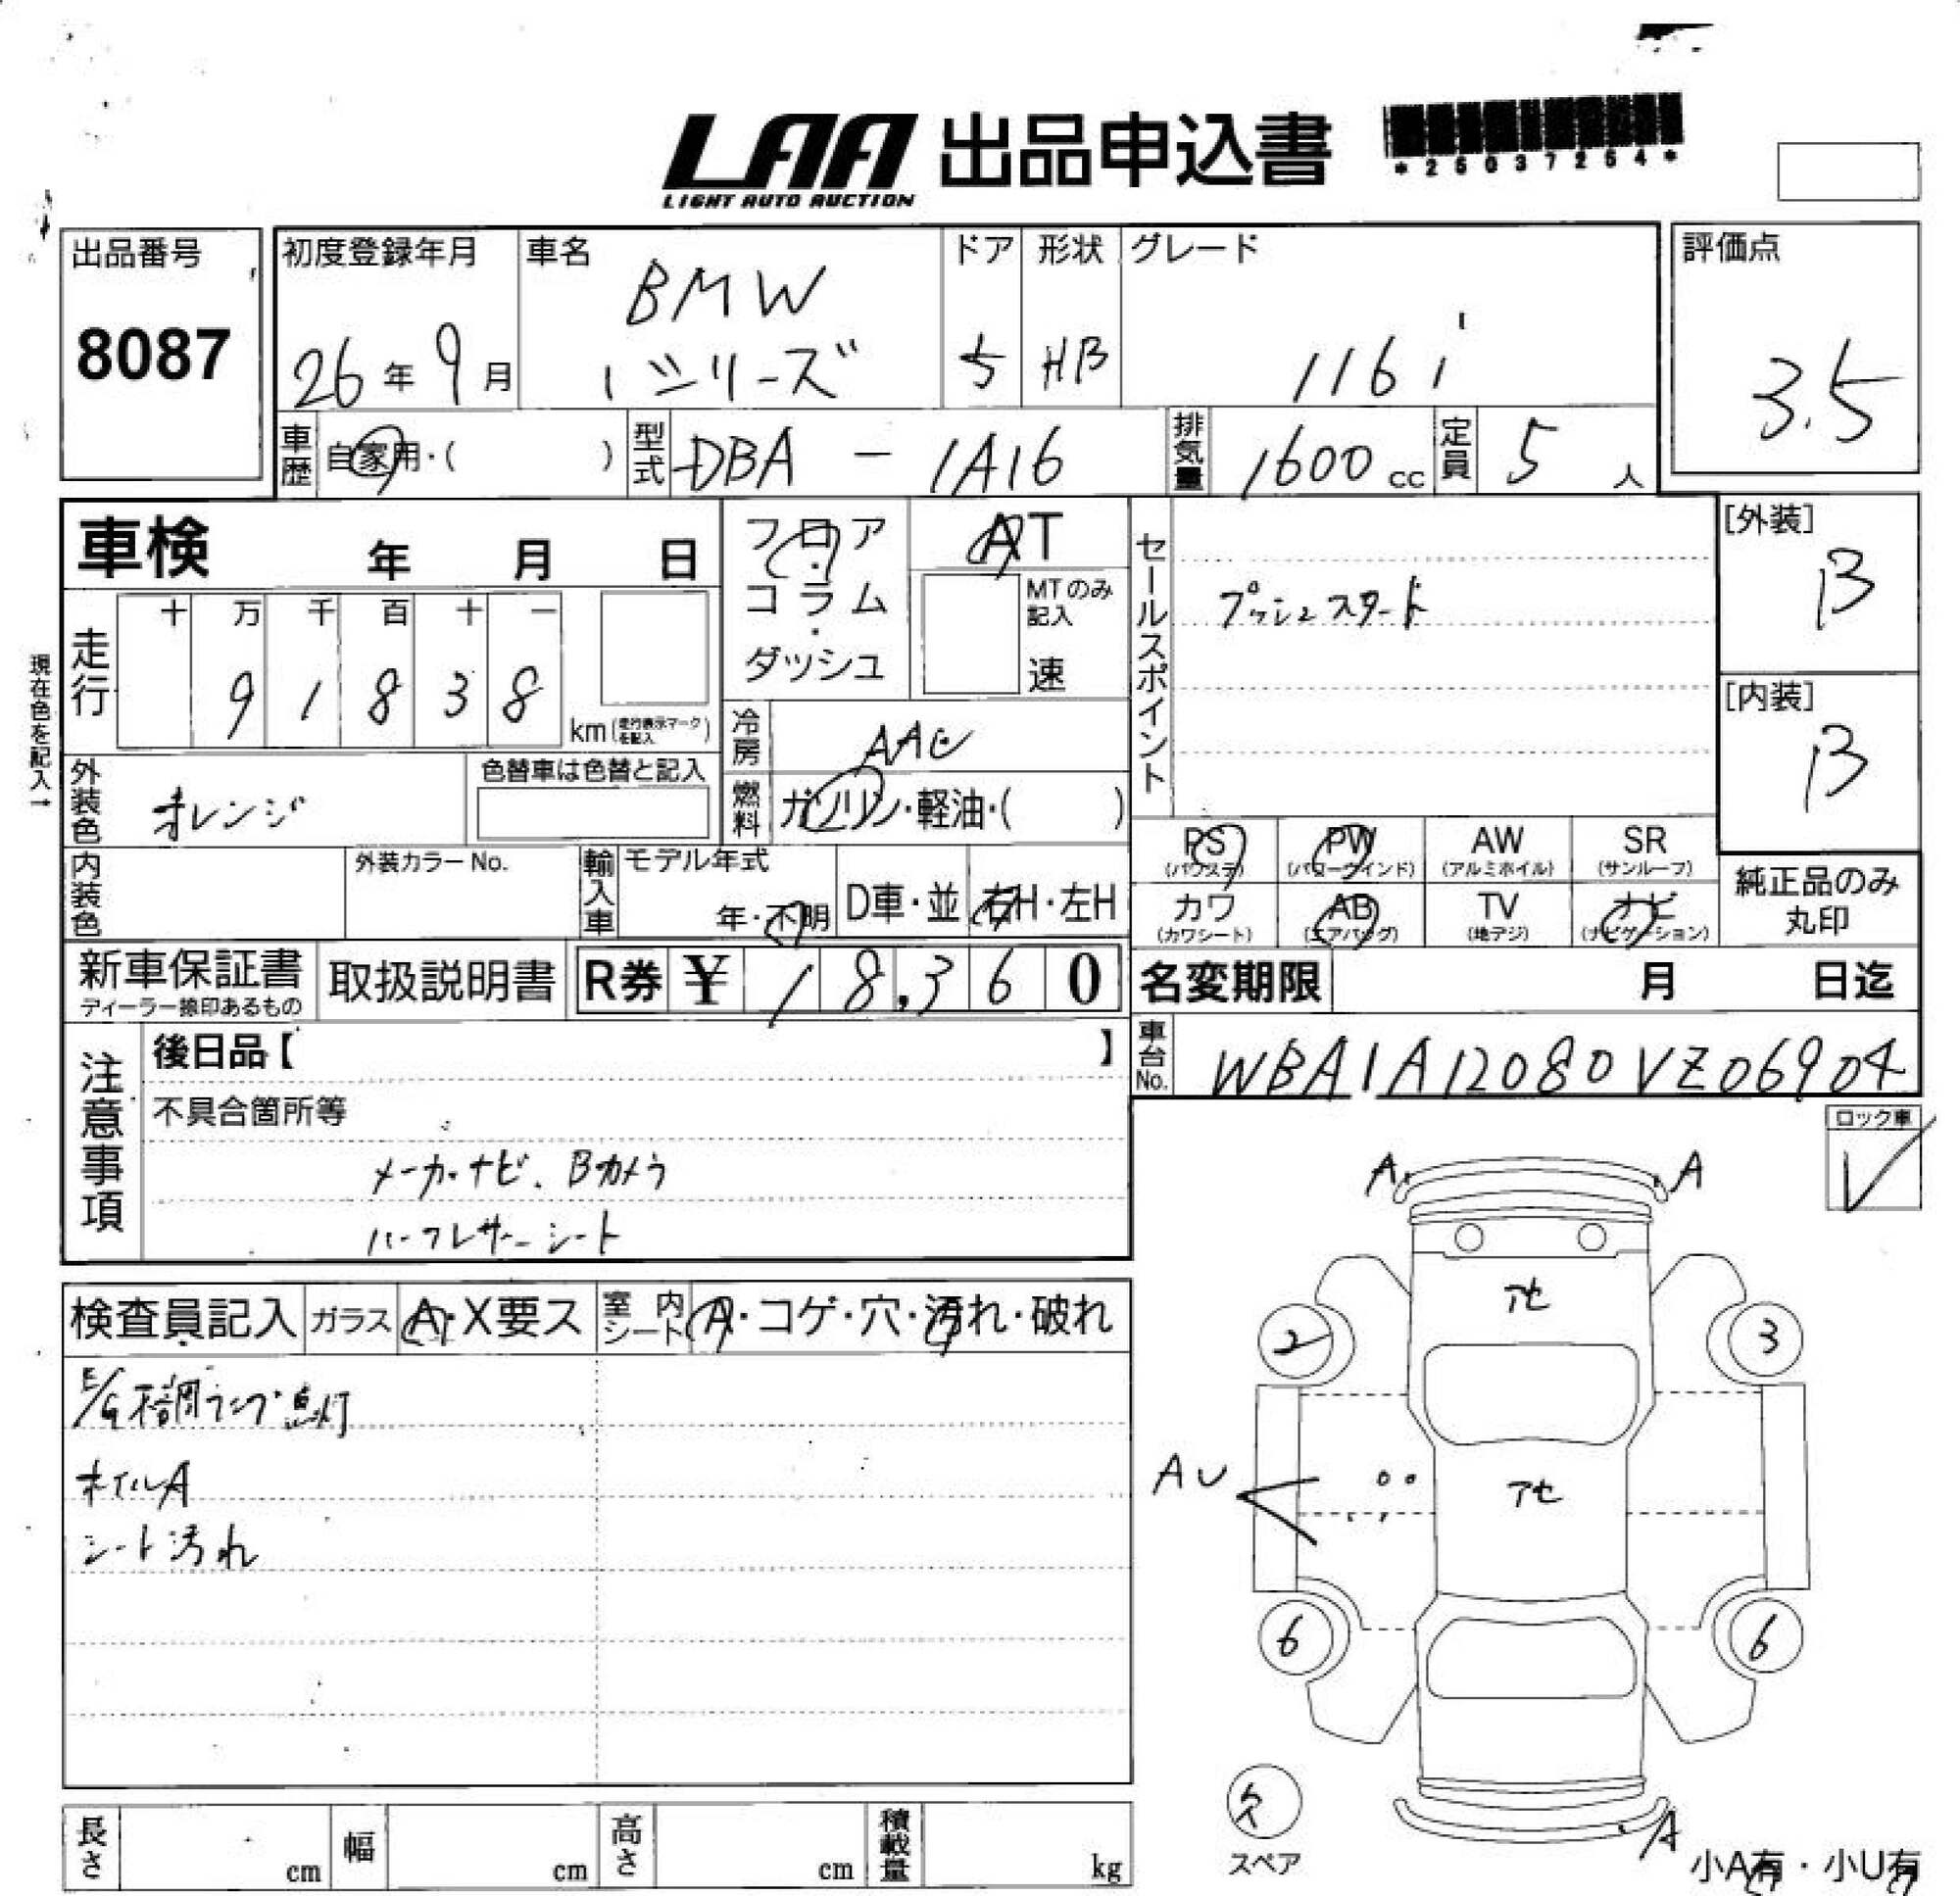 LAA 出品申込書
LIGHT AUTO AUCTION
*26037254*
出品番号
8087
初度登録年月
26年9月
車名
BMW
1シリーズ
ドア
5
形状
HB
グレード
116i
評価点
3.5
車歴
自家用・( )
型式
DBA - 1A16
排気量
1600cc
定員
5人
車検 年 月 日
フロア・コラム・ダッシュ
AT
MTのみ記入
速
セールスポイント
プッシュスタート
[外装]
B
[内装]
B
現在色を記入→
走行
十 万 千 百 十 一
9 1 8 3 8
km(走行表示マークを記入)
冷房
AAC
外装色
オレンジ
色替車は色替と記入
燃料
ガソリン・軽油・( )
PS
(パワステ)
PW
(パワーウインド)
AW
(アルミホイル)
SR
(サンルーフ)
内装色
外装カラーNo.
輸入車
モデル年式
年・不明
D車・並
右H・左H
カワ
(カワシート)
AB
(エアバッグ)
TV
(地デジ)
ナビ
(ナビゲーション)
純正品のみ
丸印
新車保証書
ディーラー捺印あるもの
取扱説明書
R券 ¥ 18,360
名変期限 月 日迄
注意事項
後日品【 】
不具合箇所等
メーカーナビ、Bカメラ
ハーフレザーシート
車台No.
WBA1A12080VZ06904
ロック車
✓
検査員記入
ガラス
A・X要ス
室内シート
A・コゲ・穴・汚れ・破れ
E/G不調ランプ点灯
ホイルA
シート汚れ
A A
アセ
2 3
AU
アセ
6 6
欠
スペア
A
小A有・小U有
長さ cm
幅 cm
高さ cm
積載量 kg